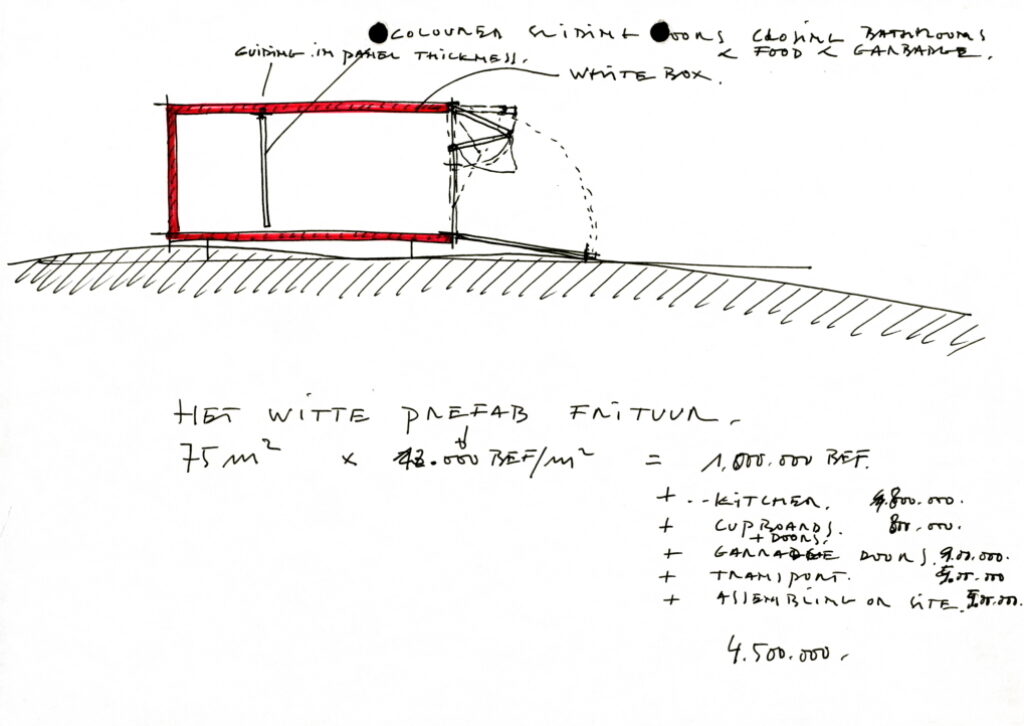 COLOURED SLIDING DOORS CLOSING BATHROOMS
& FOOD & GARBADGE.
GUIDING IN PANEL THICKNESS.
WHITE BOX.
HET WITTE PREFAB FRITUUR.
75 m² x .000 BEF/m² = 1.000.000 BEF.
+ .. KITCHEN. .800.000.
+ CUPBOARDS. 800.000.
+ DOORS.
+ DOORS. 900.000.
+ TRANSPORT. 500.000
+ ASSEMBLING ON SITE. 500.000.
4.500.000.